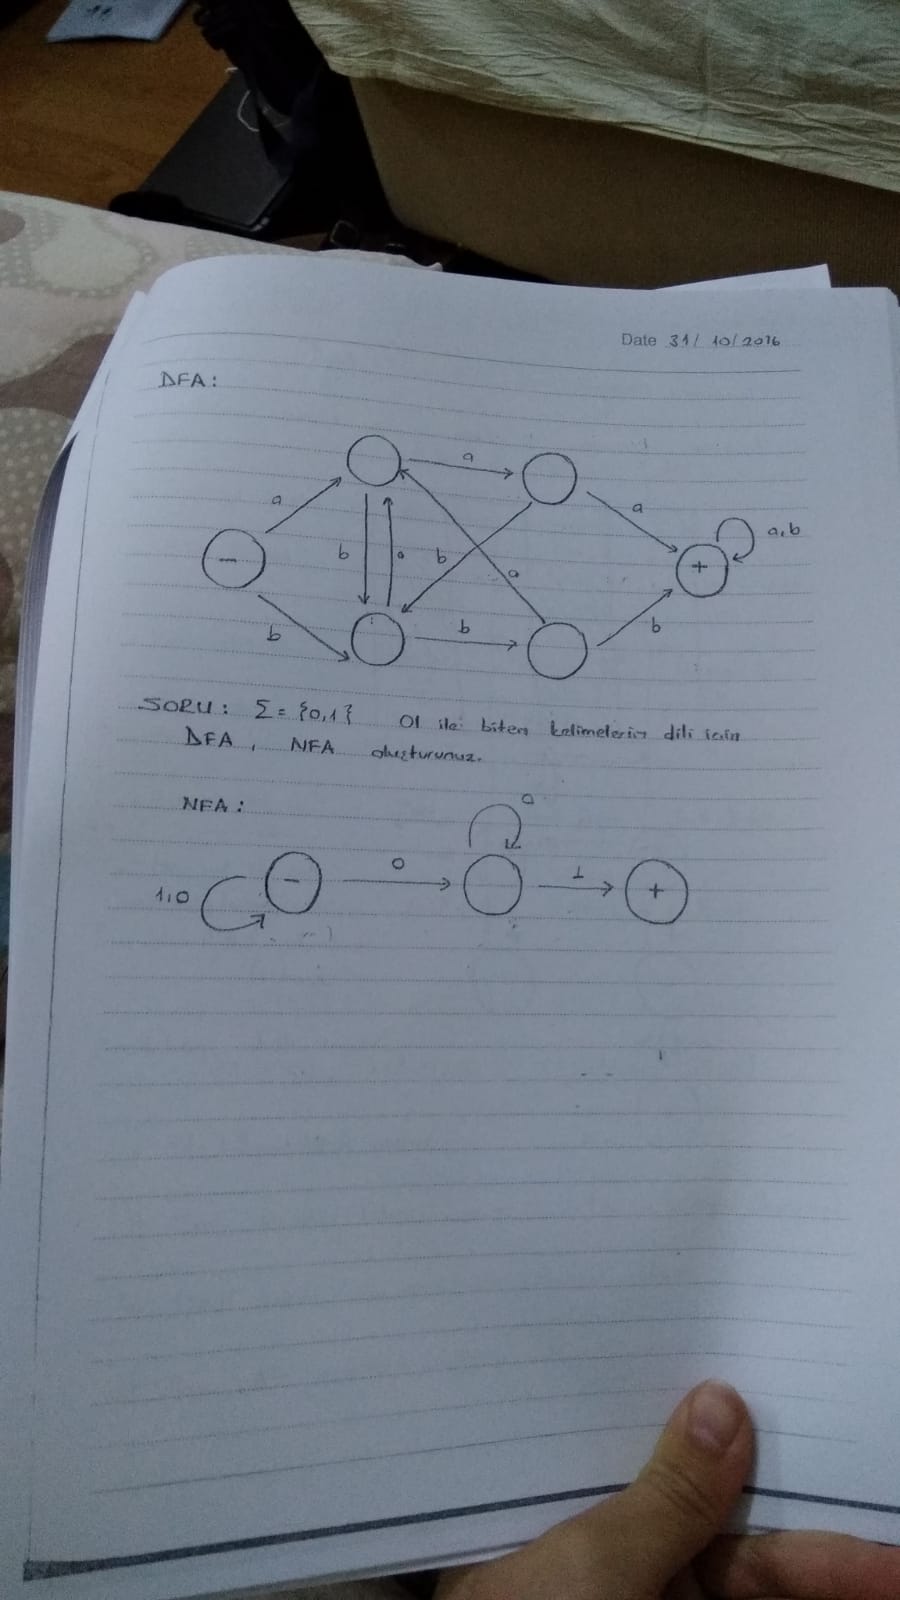 Date 31/10/2016
DFA:
a
a
a
a,b
-
b
a
b
a
+
b
b
b
SORU: Σ = {0,1} 01 ile biten kelimelerin dili için
DFA, NFA oluşturunuz.
NFA:
0
1,0
-
0
1
+